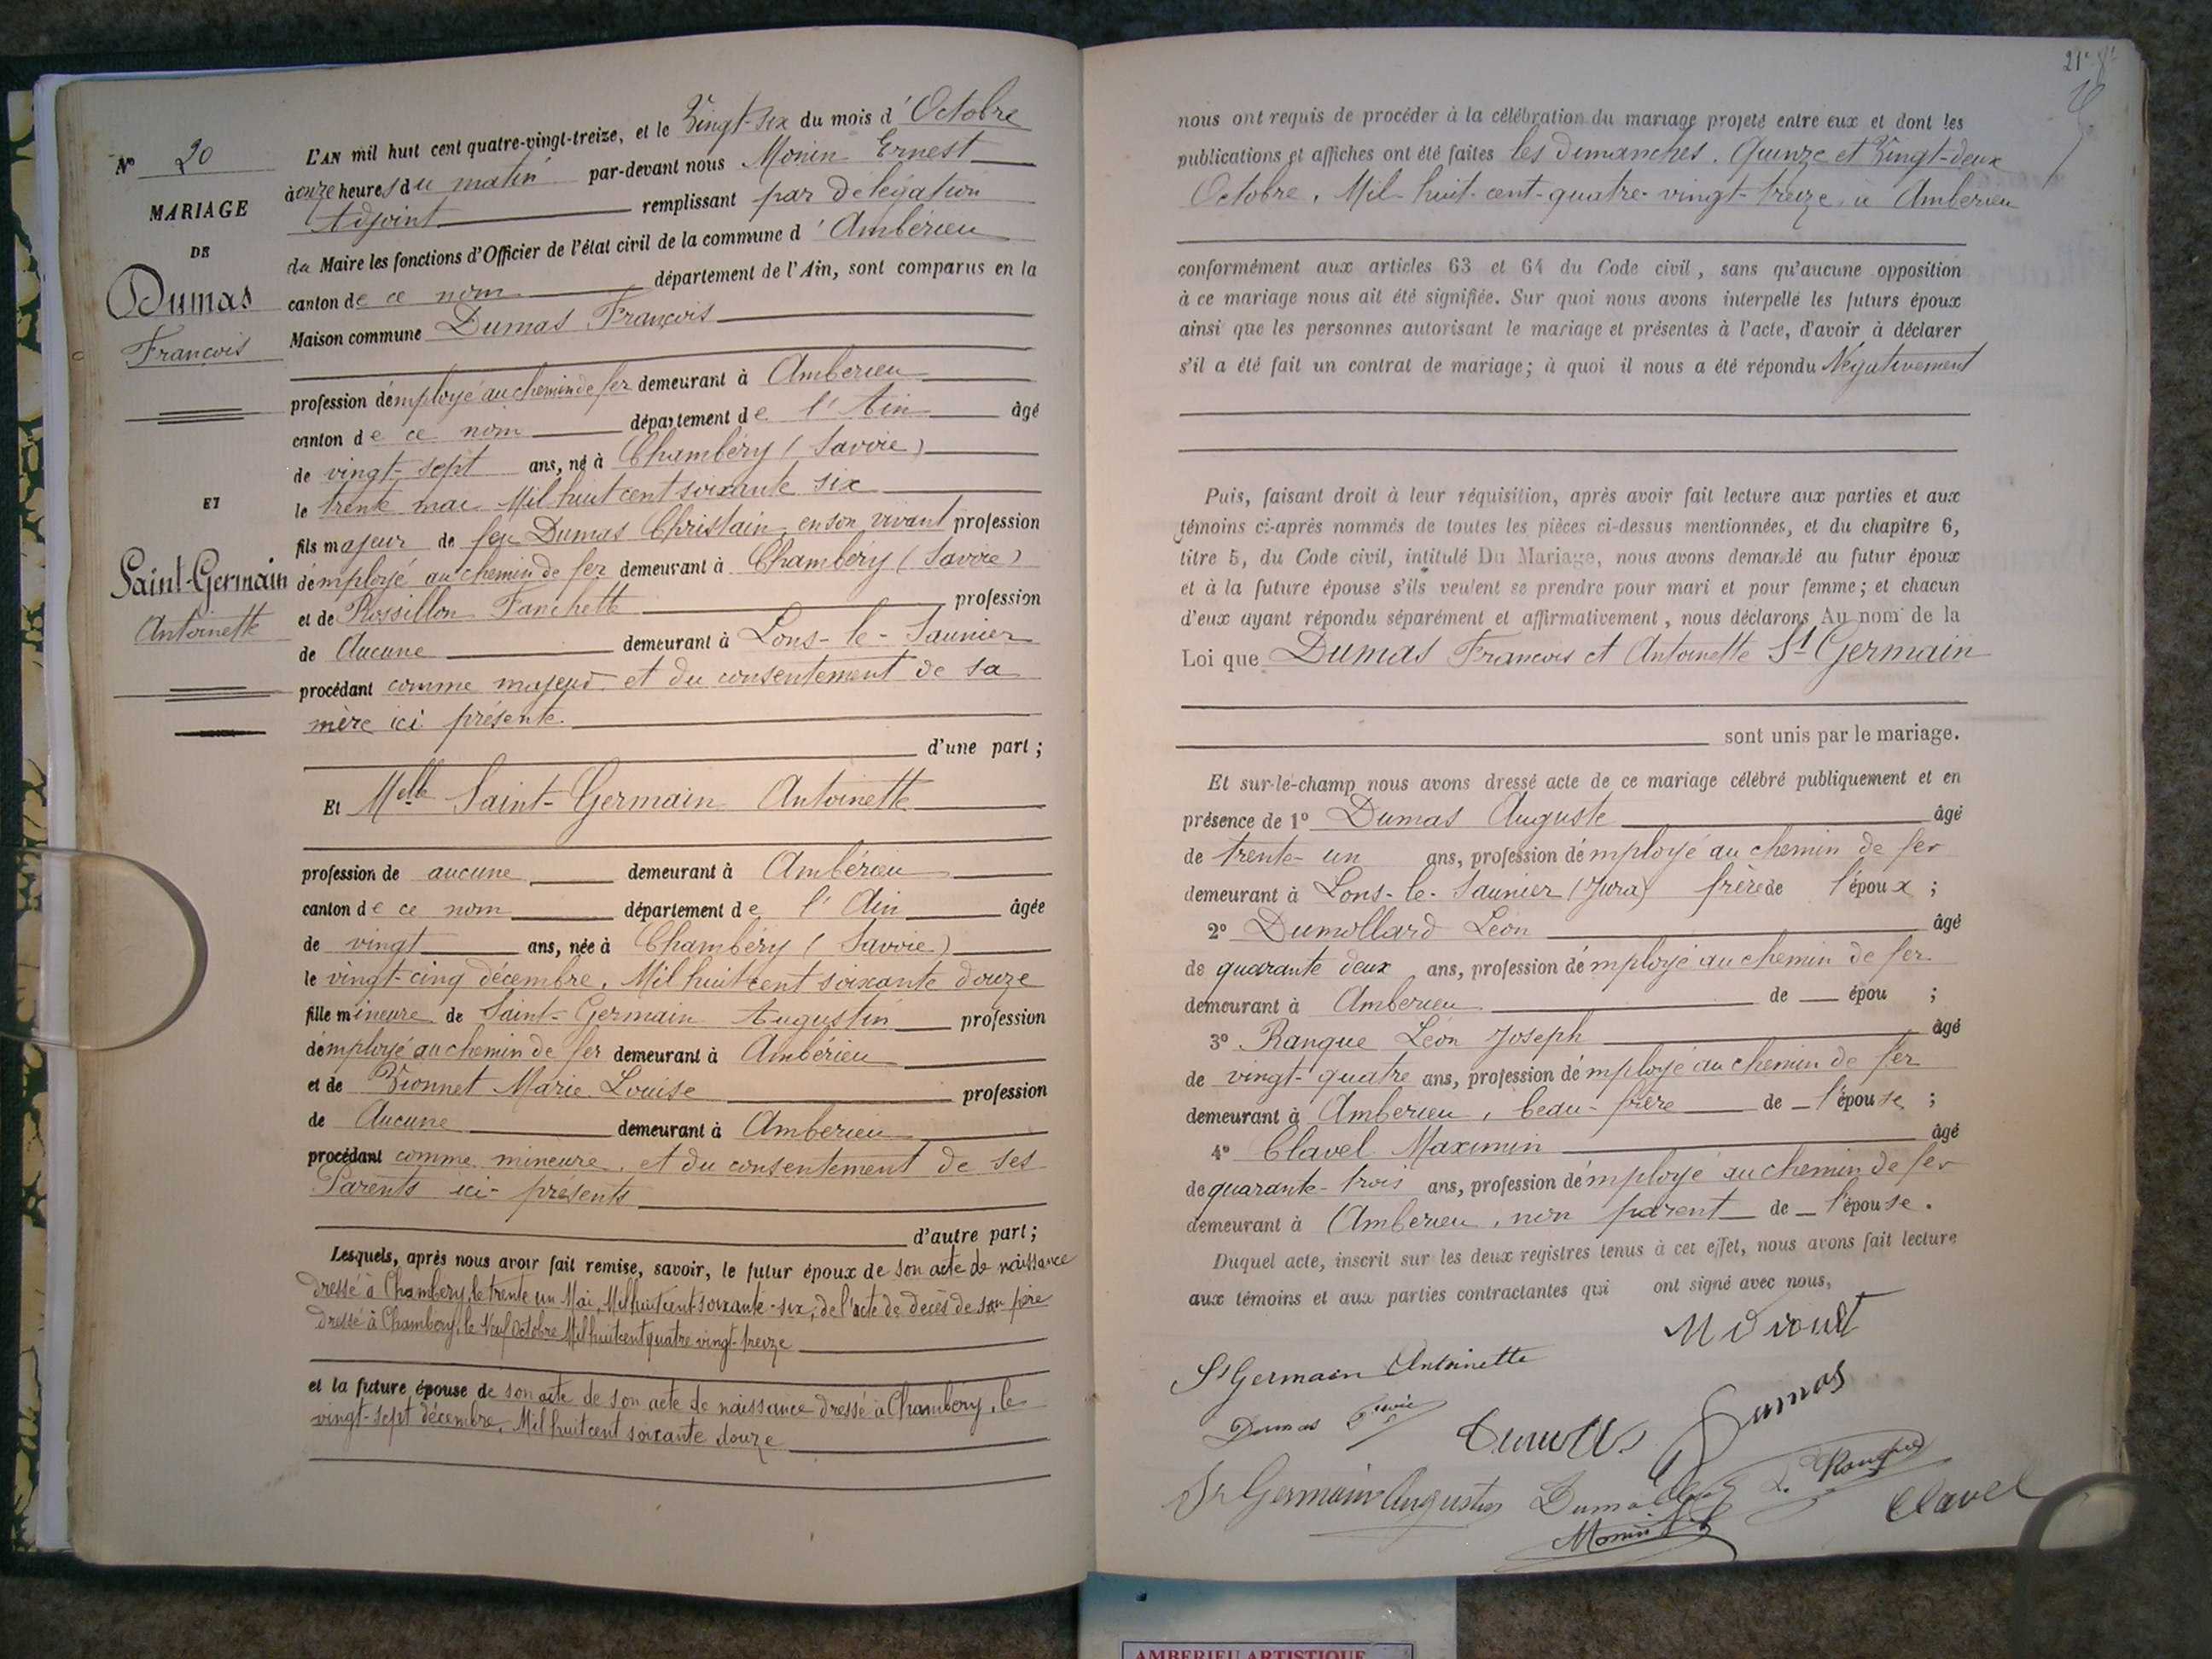 N° 20
MARIAGE
DE
Dumas
François
ET
Saint-Germain
Antoinette
L'AN mil huit cent quatre-vingt-treize, et le Vingt-six du mois d'Octobre
à onze heures du matin par-devant nous Monin Ernest
Adjoint remplissant par délégation
du Maire les fonctions d'Officier de l'état civil de la commune d'Ambérieu
canton de ce nom département de l'Ain, sont comparus en la
Maison commune Dumas François
profession d'employé au chemin de fer demeurant à Amberieu
canton de ce nom département de l'Ain âgé
de vingt-sept ans, né à Chambéry (Savoie)
le trente mai Mil huit cent soixante six
fils majeur de feu Dumas Christain, en son vivant profession
d'employé au chemin de fer demeurant à Chambéry (Savoie)
et de Rossillon Fanchette profession
de Aucune demeurant à Lons-le-Saunier
procédant comme majeur et du consentement de sa
mère ici présente.
d'une part;
Et Melle Saint-Germain Antoinette
profession de aucune demeurant à Ambérieu
canton de ce nom département de l'Ain âgée
de vingt ans, née à Chambéry (Savoie)
le vingt-cinq décembre, Mil huit cent soixante douze
fille mineure de Saint-Germain Augustin profession
d'employé au chemin de fer demeurant à Ambérieu
et de Vionnet Marie Louise profession
de Aucune demeurant à Amberieu
procédant comme mineure, et du consentement de ses
Parents ici-présents
d'autre part;
Lesquels, après nous avoir fait remise, savoir, le futur époux de son acte de naissance
dressé à Chambery, le trente un Mai, Mil huit cent soixante-six, de l'acte de decès de son père
dressé à Chambery, le Neuf Octobre Mil huit cent quatre vingt-treize
et la future épouse de son acte de son acte de naissance dressé à Chambery, le
vingt-sept décembre, Mil huit cent soixante douze
21
nous ont requis de procéder à la célébration du mariage projeté entre eux et dont les
publications et affiches ont été faites les dimanches, Quinze et Vingt-deux
Octobre, Mil-huit-cent-quatre-vingt-treize, à Amberieu
conformément aux articles 63 et 64 du Code civil, sans qu'aucune opposition
à ce mariage nous ait été signifiée. Sur quoi nous avons interpellé les futurs époux
ainsi que les personnes autorisant le mariage et présentes à l'acte, d'avoir à déclarer
s'il a été fait un contrat de mariage; à quoi il nous a été répondu Négativement
Puis, faisant droit à leur réquisition, après avoir fait lecture aux parties et aux
témoins ci-après nommés de toutes les pièces ci-dessus mentionnées, et du chapitre 6,
titre 5, du Code civil, intitulé Du Mariage, nous avons demandé au futur époux
et à la future épouse s'ils veulent se prendre pour mari et pour femme; et chacun
d'eux ayant répondu séparément et affirmativement, nous déclarons Au nom de la
Loi que Dumas François et Antoinette St Germain
sont unis par le mariage.
Et sur-le-champ nous avons dressé acte de ce mariage célébré publiquement et en
présence de 1° Dumas Auguste âgé
de trente-un ans, profession d'employé au chemin de fer
demeurant à Lons-le-Saunier (Jura) frère de l'époux;
2° Dumollard Léon âgé
de quarante deux ans, profession d'employé au chemin de fer
demeurant à Amberieu de épou ;
3° Ranque Léon Joseph âgé
de vingt-quatre ans, profession d'employé au chemin de fer
demeurant à Amberieu, beau-frère de l'épouse;
4° Clavel Maximin âgé
de quarante-trois ans, profession d'employé au chemin de fer
demeurant à Amberieu, non parent de l'épouse.
Duquel acte, inscrit sur les deux registres tenus à cet effet, nous avons fait lecture
aux témoins et aux parties contractantes qui ont signé avec nous,
St Germain Antoinette
Dumas
Dumas
St Germain Augustin
Clavel
Monin
AMBERIEU ARTISTIQUE